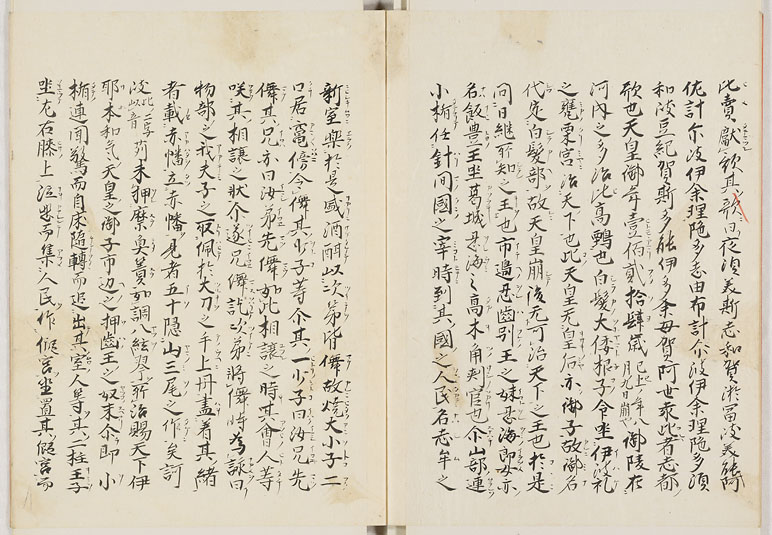 比賣獻歌其歌曰夜須美斯志和賀淤冨岐美能阿
佐計尓波伊余理陁多志由布計尓波伊余理陁多須
和岐豆紀賀斯多能伊多尓母賀阿世袁此者志都
歌也天皇御年壹佰貳拾肆歳己巳年八月九日崩也御陵在
河内之多治比高鸇也白髮大倭根子命坐伊波礼
之甕栗宮治天下也此天皇无皇后亦御子故御名
代定白髮部故天皇崩後无可治天下之王也於是
問日継所知之王也市邊忍齒別王之妹忍海郎女亦
名飯豊王坐葛城忍海之高木角刺宮也尓山部連
小楯任針間國之宰時到其國之人民名志牟之
新室樂於是盛酒酣以次第皆儛故燒火小子二
口居竃傍令儛其少子等尓其一少子曰汝兄先
儛其兄亦曰汝弟先儛如此相讓之時其會人等
咲其相讓之状尓遂兄儛訖次弟將儛時為詠曰
物部之我夫子之取佩於大刀之手上丹畫著其緒
者載赤幡立赤幡見者五十隠山三尾之竹矣訶
岐此二字以音苅末押靡魚簀如調八絃琴所治賜天下伊
耶本和氣天皇之御子市邊之押齒王之奴末尓即小
楯連聞驚而自床墮轉而追出其室人等其二柱王子
坐左右膝上泣悲而集人民作假宮坐置其假宮而